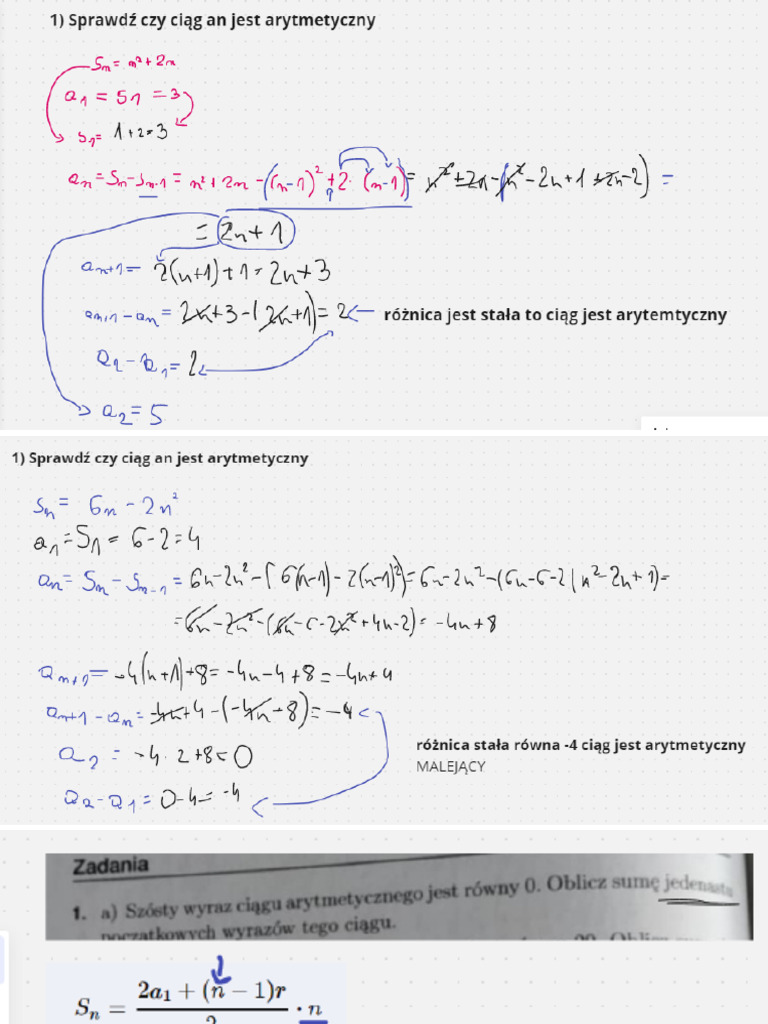 1) Sprawdź czy ciąg an jest arytmetyczny
Sn = n² + 2n
a1 = S1 = 3
S1 = 1 + 2 = 3
an = Sn - Sn-1 = n² + 2n - ((n-1)² + 2·(n-1)) = n² + 2n - (n² - 2n + 1 + 2n - 2) =
= 2n + 1
an+1 = 2(n+1) + 1 = 2n + 3
an+1 - an = 2n + 3 - (2n + 1) = 2 różnica jest stała to ciąg jest arytemtyczny
a2 - a1 = 2
a2 = 5
1) Sprawdź czy ciąg an jest arytmetyczny
Sn = 6n - 2n²
a1 = S1 = 6 - 2 = 4
an = Sn - Sn-1 = 6n - 2n² - (6(n-1) - 2(n-1)²) = 6n - 2n² - (6n - 6 - 2(n² - 2n + 1) =
= 6n - 2n² - (6n - 6 - 2n² + 4n - 2) = -4n + 8
an+1 = -4(n+1) + 8 = -4n - 4 + 8 = -4n + 4
an+1 - an = -4n + 4 - (-4n + 8) = -4
a2 = -4 · 2 + 8 = 0
różnica stała równa -4 ciąg jest arytmetyczny
MALEJĄCY
a2 - a1 = 0 - 4 = -4
Zadania
1. a) Szósty wyraz ciągu arytmetycznego jest równy 0. Oblicz sumę jedenastu
początkowych wyrazów tego ciągu.
Sn = (2a1 + (n - 1)r)/2 · n